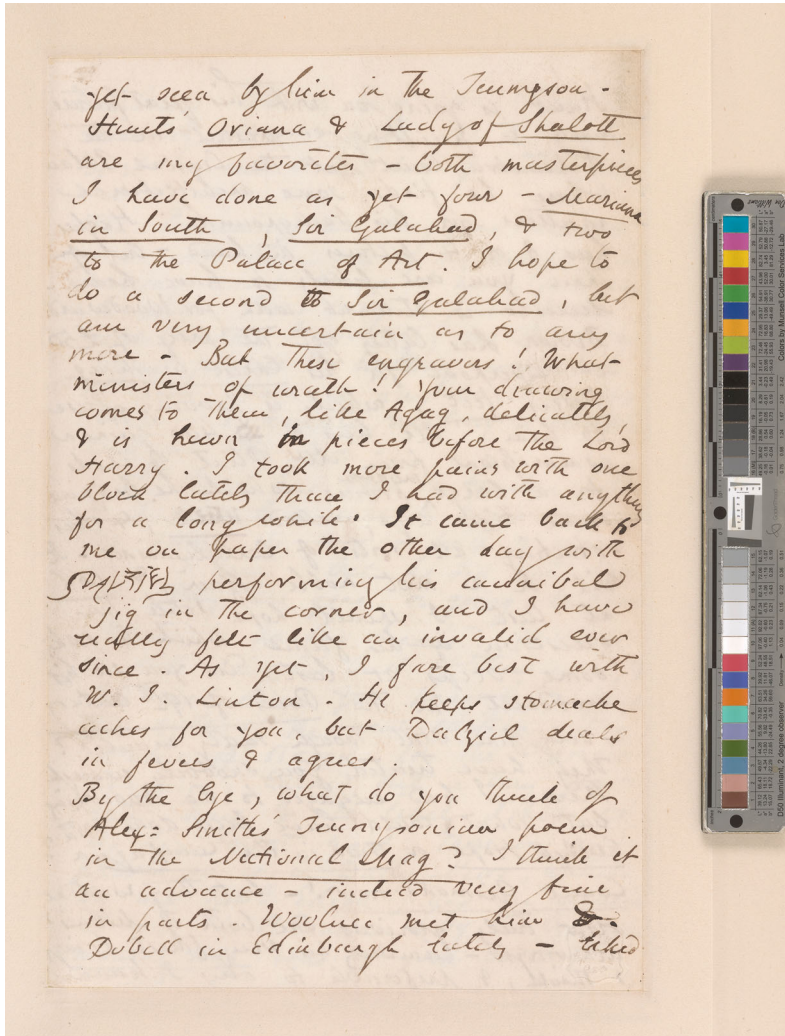 yet seen by him in the Tennyson -
Hunt's Oriana & Lady of Shalott
are my favorites - both masterpieces
I have done as yet four - Mariana
in South, Sir Galahad, & two
to the Palace of Art. I hope to
do a second to Sir Galahad, but
am very uncertain as to any
more - But these engravers! What
ministers of wrath! Your drawing
comes to them, like Agag, delicately,
& is hewn in pieces before the Lord
Harry. I took more pains with one
block lately than I had with anything
for a long while. It came back to
me on paper the other day with
performing his cannibal
jig in the corner, and I have
really felt like an invalid ever
since. As yet, I fare best with
W. J. Linton. He keeps stomache
aches for you, but Dalziel deals
in fevers & agues.
By the bye, what do you think of
Alex= Smith's Tennysonian poem
in the National Mag? I think it
an advance - indeed very fine
in parts. Woolner met him &
Dobell in Edinburgh lately - liked
Colors by Munsell Color Services Lab
D50 Illuminant, 2 degree observer
Density